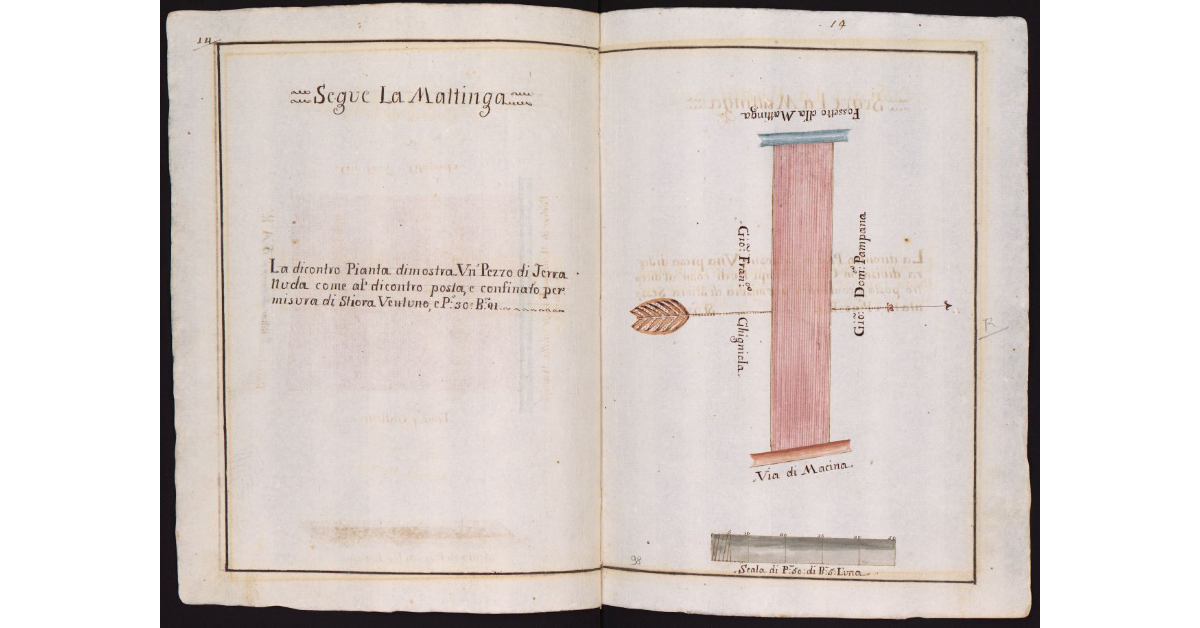 14
Segue La Mattinga
La dicontro Pianta dimostra Un' Pezzo di Terra
Nuda come al' dicontro posta, e confinato per
misura di Stiora Ventuno, e P.e 50: B.a 41
14
Fossetto dlla Mattinga
Gio: Fran.co Ghigniela
Gio: Dom.co Pampana
Via di Macina.
10 20 30 40 50
Scala di P.e 50: di B.a 5: L'una
98
R